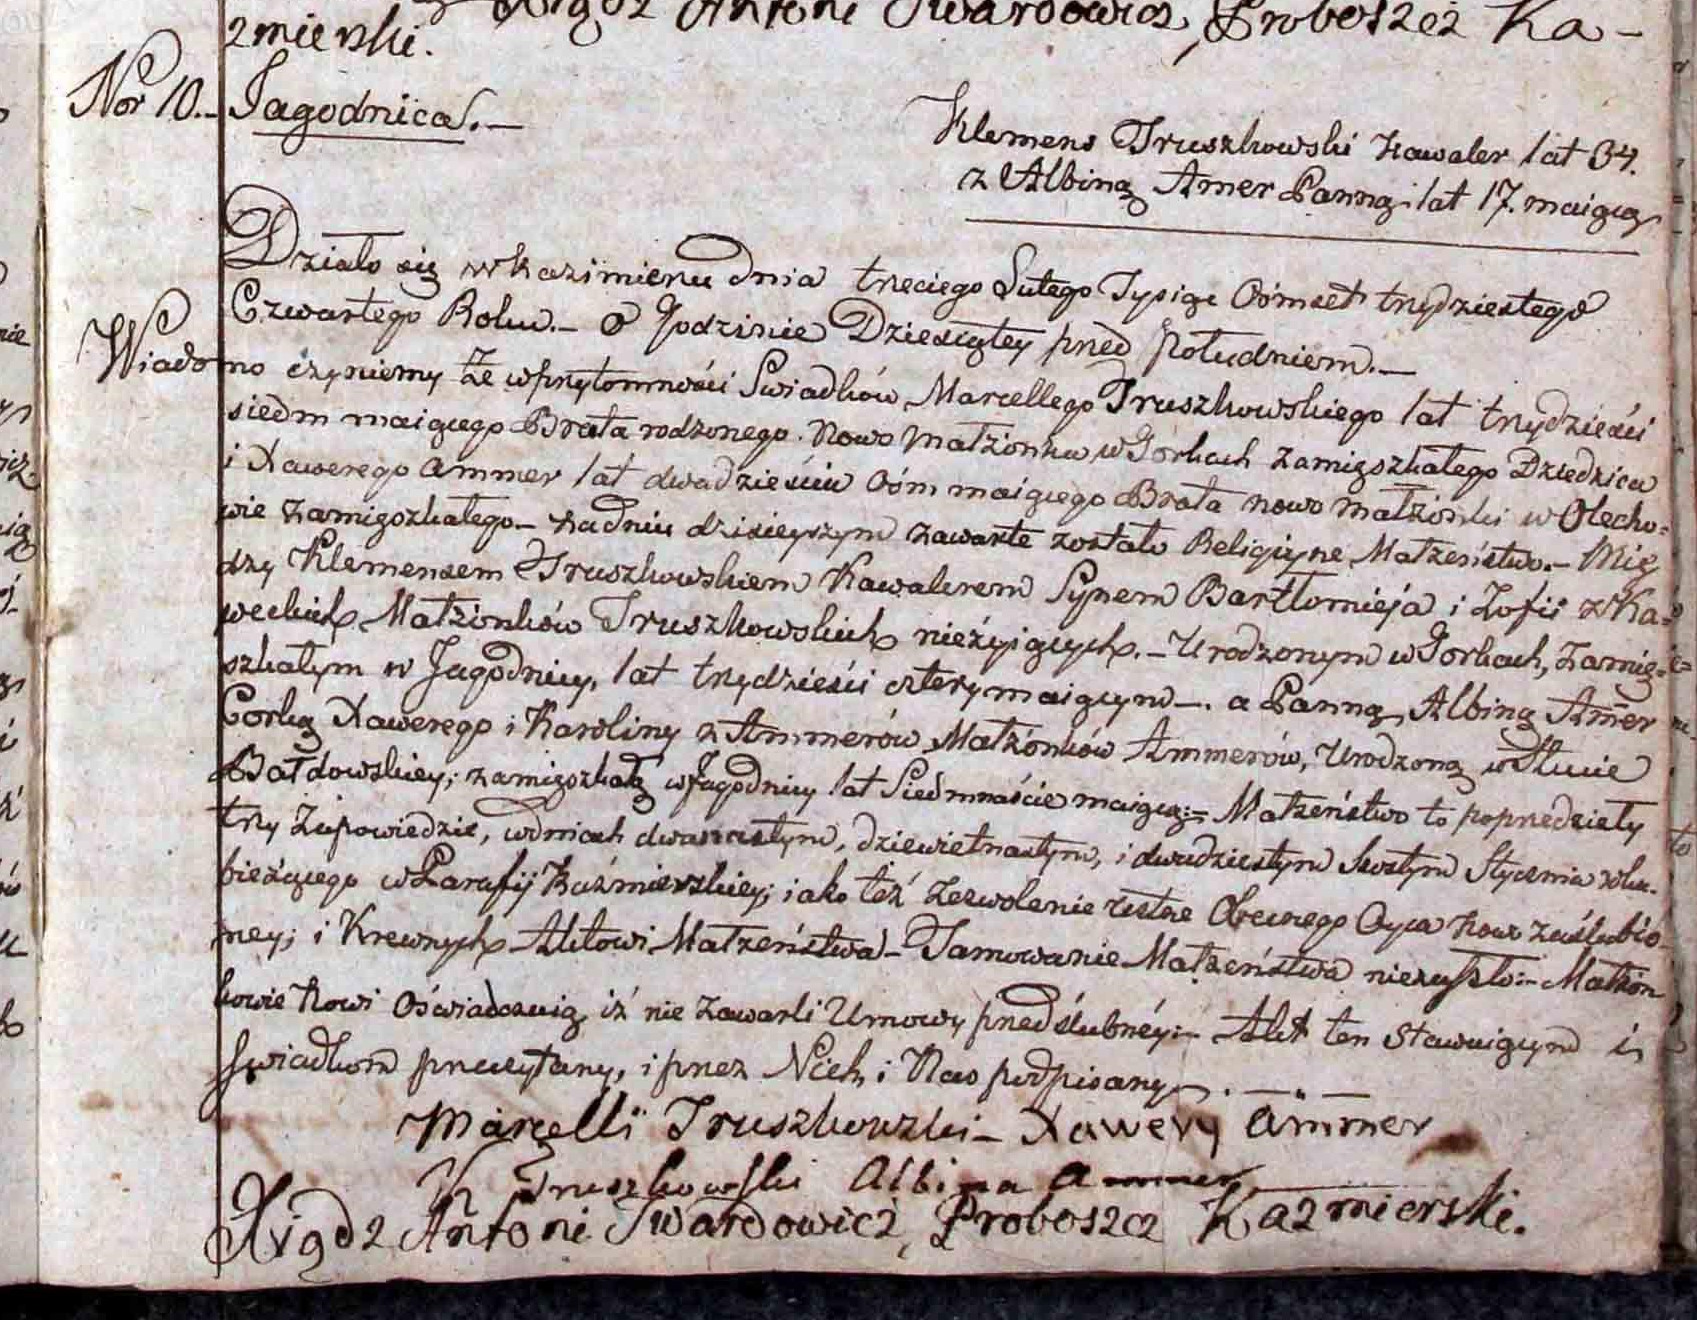 Xiądz Antoni Twardowicz, Proboszcz Ka-
zmierski.
Nor 10.- Jagodnica.-
Klemens Truszkowski Kawaler lat 34.
z Albiną Amer Panną lat 17. maiącą
Działo się w Kazimierzu dnia trzeciego Lutego Tysiąc Ośmset trzydziestego
Czwartego Roku.- o Godzinie Dziesiątey przed Południem.-
Wiadomo czyniemy że w przytomności Swiadków Marcellego Truszkowskiego lat trzydzieści
siedm maiącego Brata rodzonego Nowo Małżonka w Gorkach zamięszkałego Dziedzica
i Xawerego Ammer lat dwadzieścia Ośm maiącego Brata nowo Małżonki w Olecho-
wie zamięszkałego- na dniu dzisieyszym zawarte zostało Religiyne Małżeństwo.- Mię
dzy Klemensem Truszkowskiem Kawalerem Synem Bartłomieja i Zofii z Ka-
weckich Małżonków Truszkowskich nieżyiących.- Urodzonym w Gorkach, zamię-
szkałym w Jagodnicy, lat trzydzieści cztery maiącym-. a Panną Albiną Amer
Corką Xawerego i Karoliny z Ammerów Małżonków Ammerów, Urodzoną w Hucie
Bałdowskiey; zamięszkałą w Jagodnicy lat Siedmnaście maiącą:- Małżeństwo to poprzedziły
trzy Zapowiedzie, w dniach dwunastym, dziewietnastym, i dwudziestym szostym Stycznia roku
bieżącego w Parafij Kaźmierskiey; iako też Zezwolenie ustne Obecnego Oyca Nowo zaślubio-
ney; i Krewnych Aktowi Małżeństwa- Tamowanie Małżeństwa niezaszło:- Małżon
kowie Nowi Oświadczaią, iż nie zawarli Umowy przedślubnéy:- Akt ten Stawaiącym i
Swiadkom przeczytany, i przez Nich i Nas podpisany.-
Marcelli Truszkowski- Xawery Ammer
K Truszkowski Albina Ammer
Xiądz Antoni Twardowicz, Proboszcz Kazmierski.